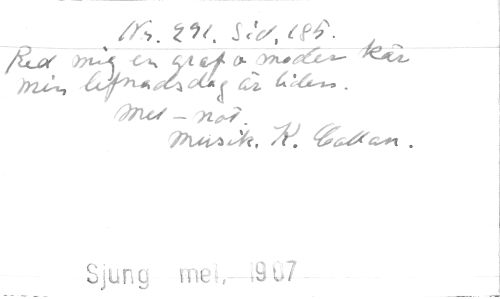 Nr. 291. Sid. 185.
Red mig en graf o moder kär
min lefnadsdag är liden.
Mel - not.
Musik. K. Collan.
Sjung mel, 1907